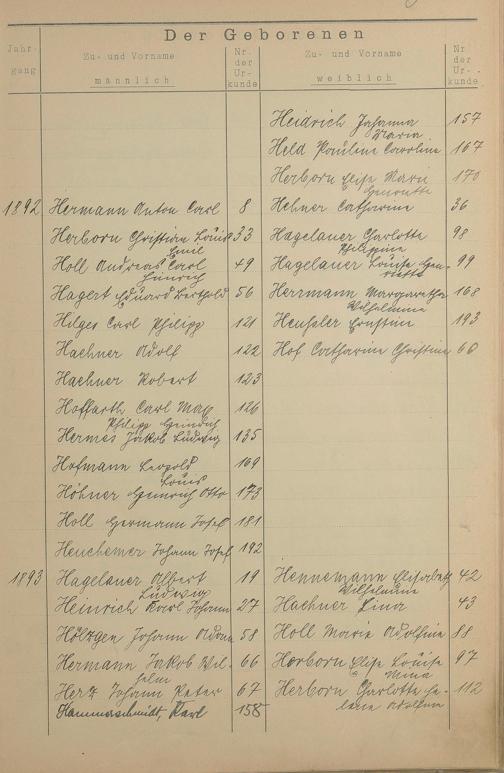 Der Geborenen
Jahr-
gang
Zu- und Vorname
männlich
Nr.
der
Ur-
kunde
Zu- und Vorname
weiblich
Nr
der
Ur-
kunde
Heidrich Johanna 157
Maria
Held Pauline Caroline 167
Herborn Elise Marie 170
Henriette
1892 Hermann Anton Carl 8 Hehner Catharine 36
Herborn Christian Louis 33 Hagelauer Charlotte 98
Emil Philippine
Holl Andreas Carl 49 Hagelauer Louise Hen- 99
Heinrich riette
Hagert Eduard Berthold 56 Herrmann Margaretha 168
Wilhelmine
Hilges Carl Philipp 121 Ernstine 193
Hachner Adolf 122 Hof Catharine Christine 60
Hachner Robert 123
Hoffarth Carl Max 126
Philipp Heinrich
Hermes Jakob Ludwig 135
Hofmann Leopold 169
Louis
Höhner Heinrich Otto 173
Holl Hermann Josef 181
Heuchemer Johann Josef 192
1893 Hagelauer Albert 19 Hennemann Elisabeth 42
Ludwig Wilhelmine
Heinrich Karl Johann 27 Hachner Lina 43
Hölzgen Johann Adam 58 Holl Maria Adolfine 88
Hermann Jakob Wil- 66 Herborn Elise Louise 97
helm Mina
Herz Johann Peter 67 Herborn Charlotte He- 112
Hammerschmidt, Karl 158 lene